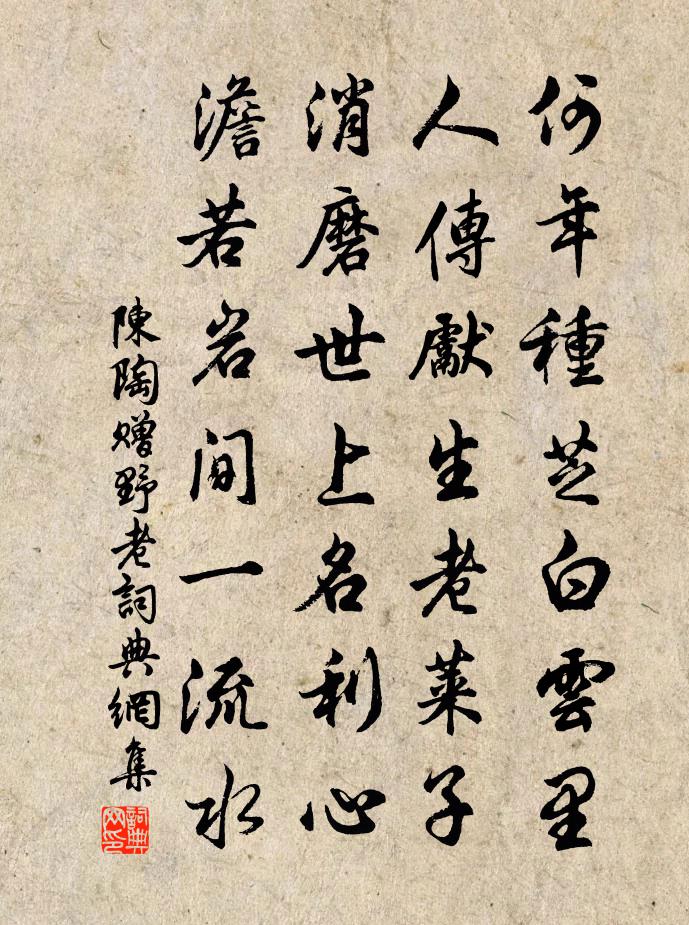 何年種芝白雲里
人傳獻生老萊子
消磨世上名利心
澹若岩間一流水
陳陶贈野老詞典網集
詞典網印